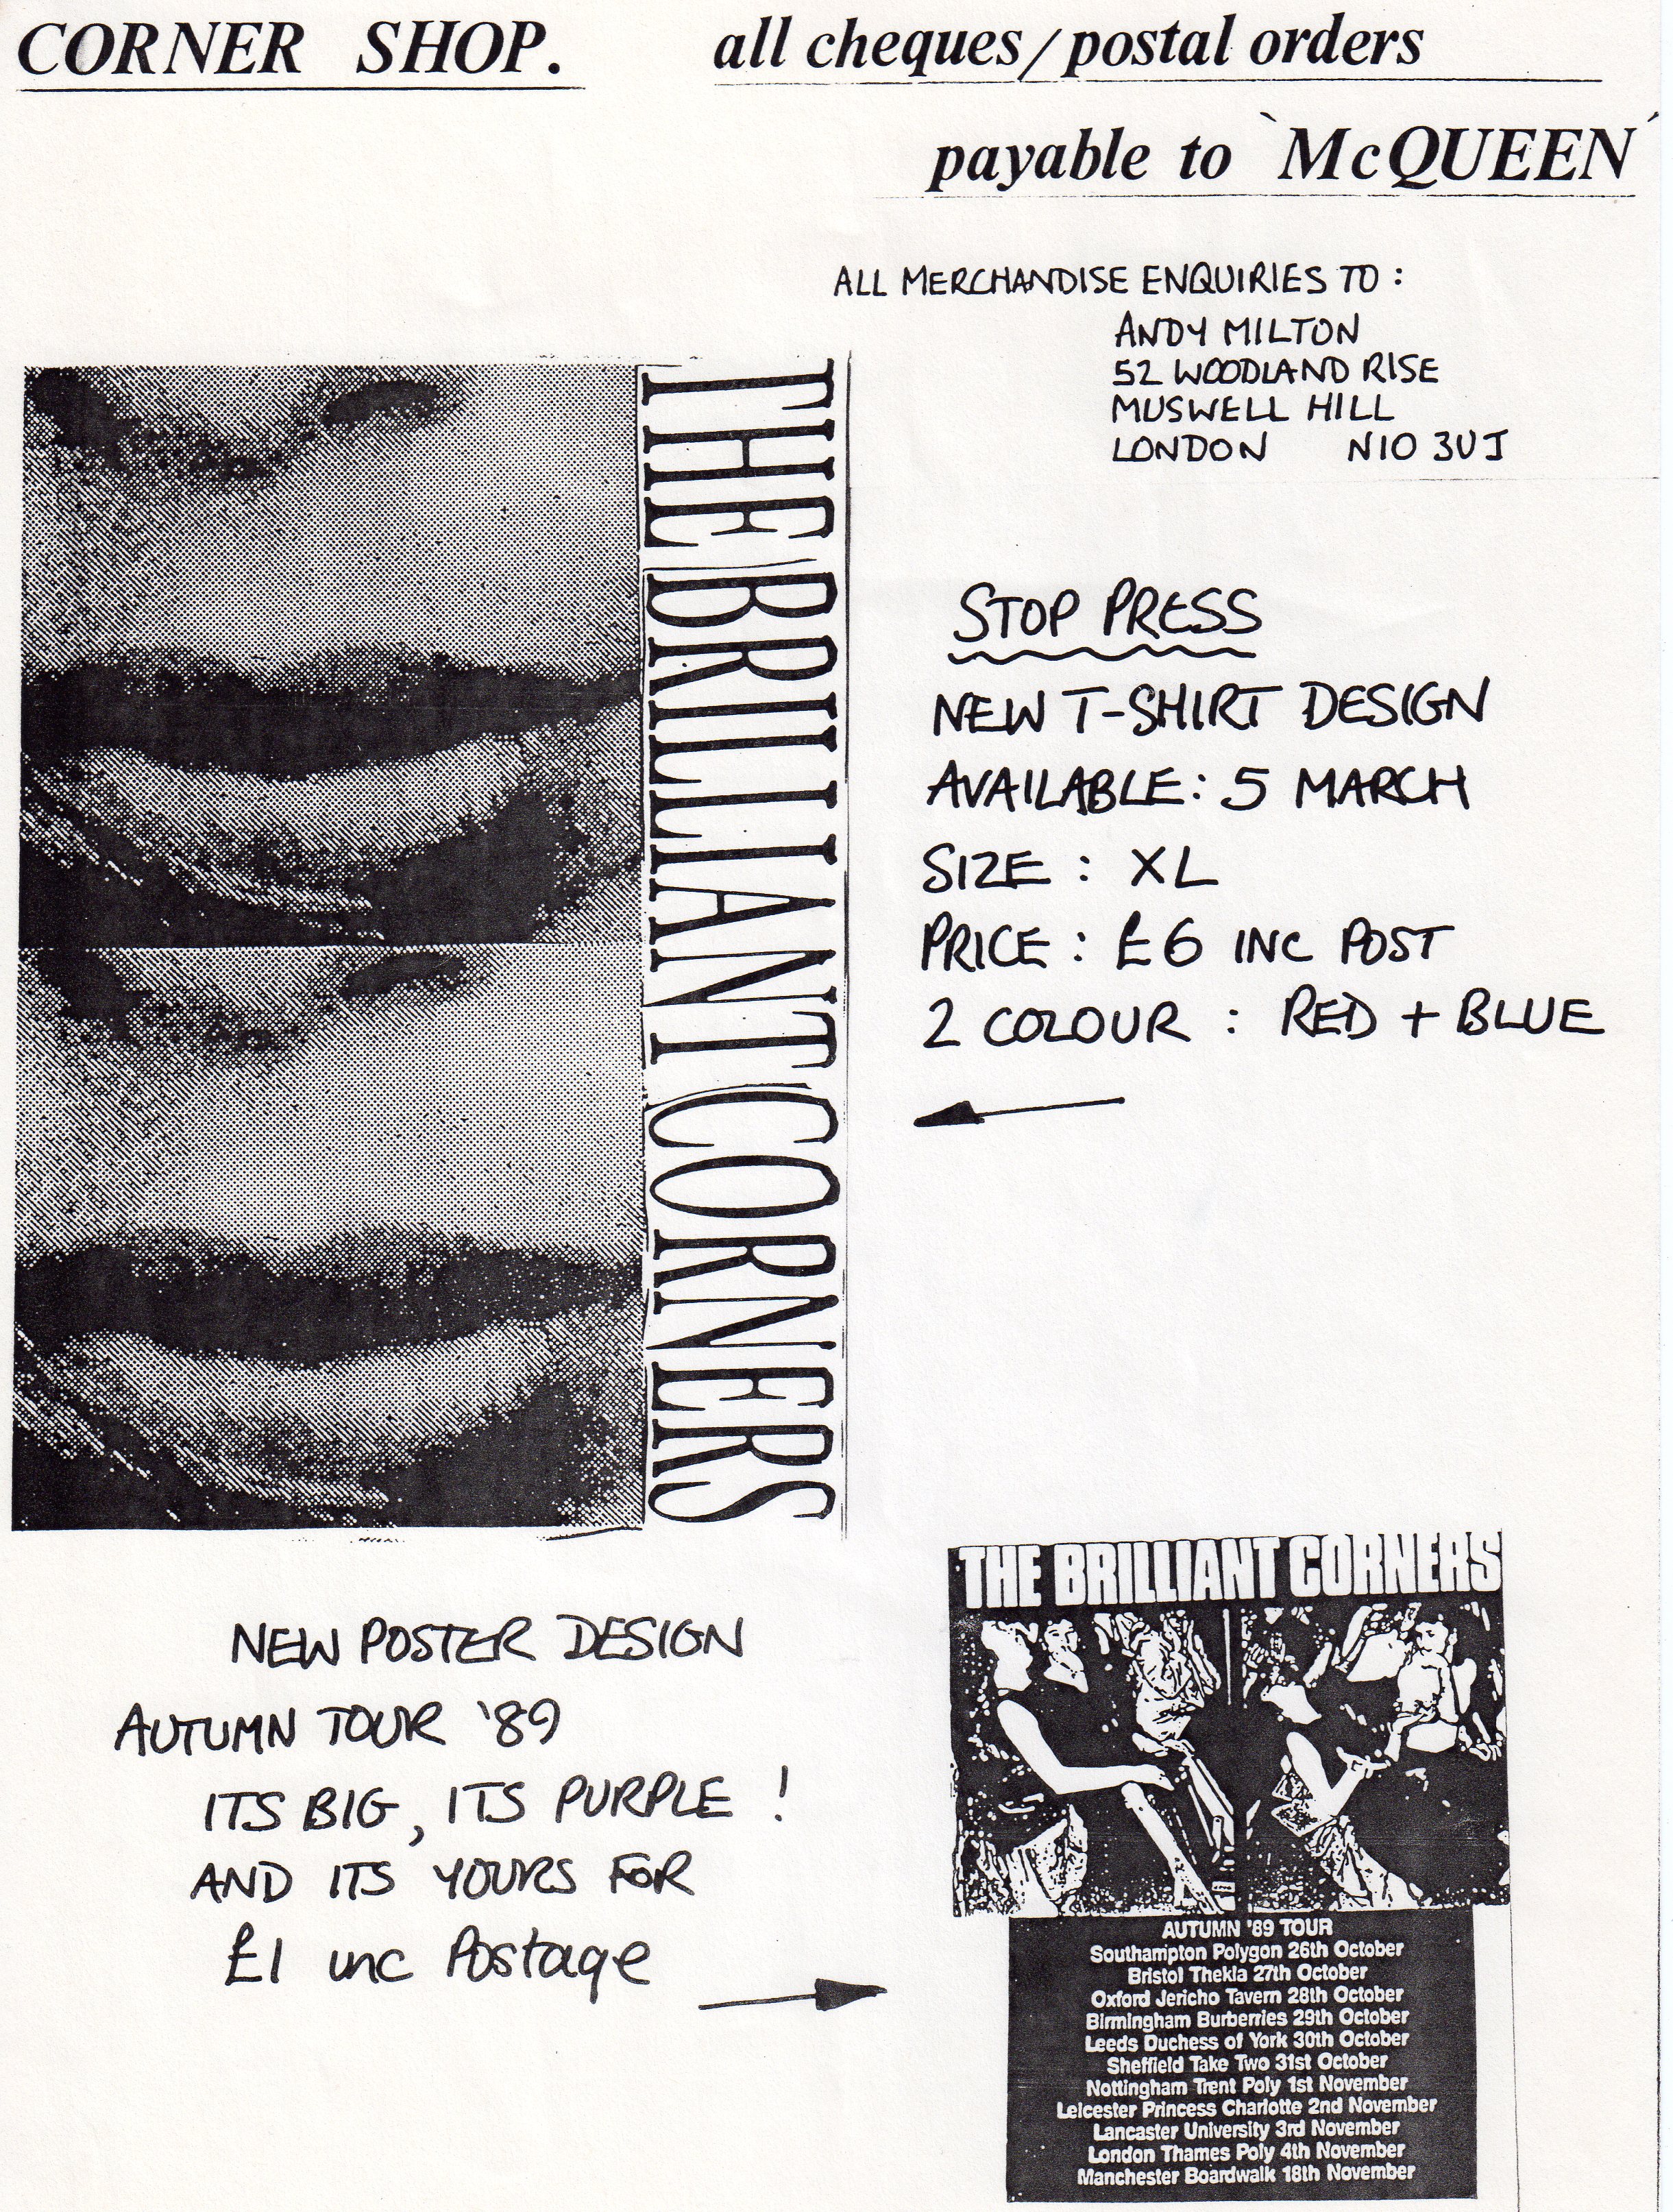 CORNER SHOP.
all cheques/postal orders
payable to `McQUEEN´
ALL MERCHANDISE ENQUIRIES TO :
ANDY MILTON
52 WOODLAND RISE
MUSWELL HILL
LONDON N10 3UJ
THE BRILLIANT CORNERS
STOP PRESS
NEW T-SHIRT DESIGN
AVAILABLE: 5 MARCH
SIZE : XL
PRICE : £6 INC POST
2 COLOUR : RED + BLUE
NEW POSTER DESIGN
AUTUMN TOUR '89
ITS BIG, ITS PURPLE !
AND ITS YOURS FOR
£1 inc Postage
THE BRILLIANT CORNERS
AUTUMN '89 TOUR
Southampton Polygon 26th October
Bristol Thekla 27th October
Oxford Jericho Tavern 28th October
Birmingham Burberries 29th October
Leeds Duchess of York 30th October
Sheffield Take Two 31st October
Nottingham Trent Poly 1st November
Leicester Princess Charlotte 2nd November
Lancaster University 3rd November
London Thames Poly 4th November
Manchester Boardwalk 18th November